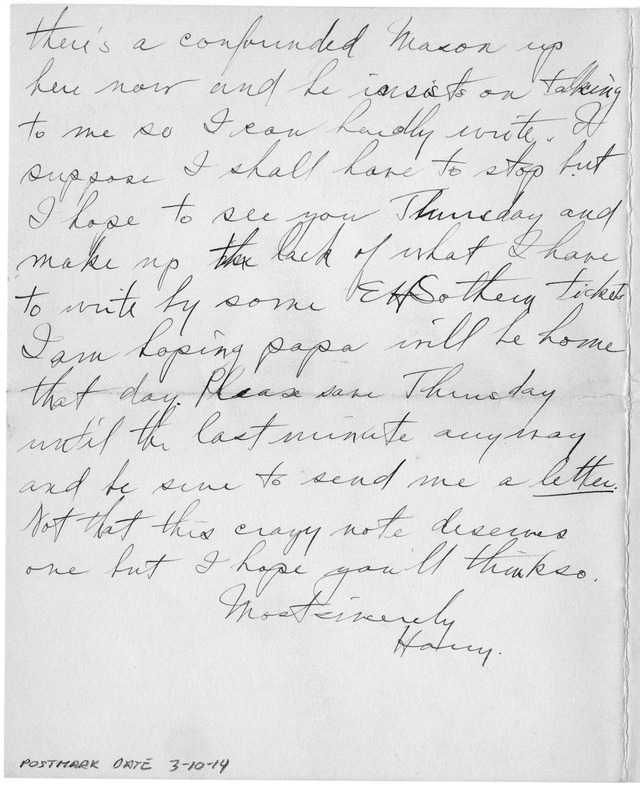 there's a confounded Mason up
here now and he insists on talking
to me so I can hardly write. I
suppose I shall have to stop but
I hope to see you Thursday and
make up the lack of what I have
to write by some EHSothern tickets
I am hoping papa will be home
that day. Please save Thursday
until the last minute anyway
and be sure to send me a letter.
Not that this crazy note deserves
one but I hope you'll think so.
Most sincerely
Harry.
POSTMARK DATE 3-10-14